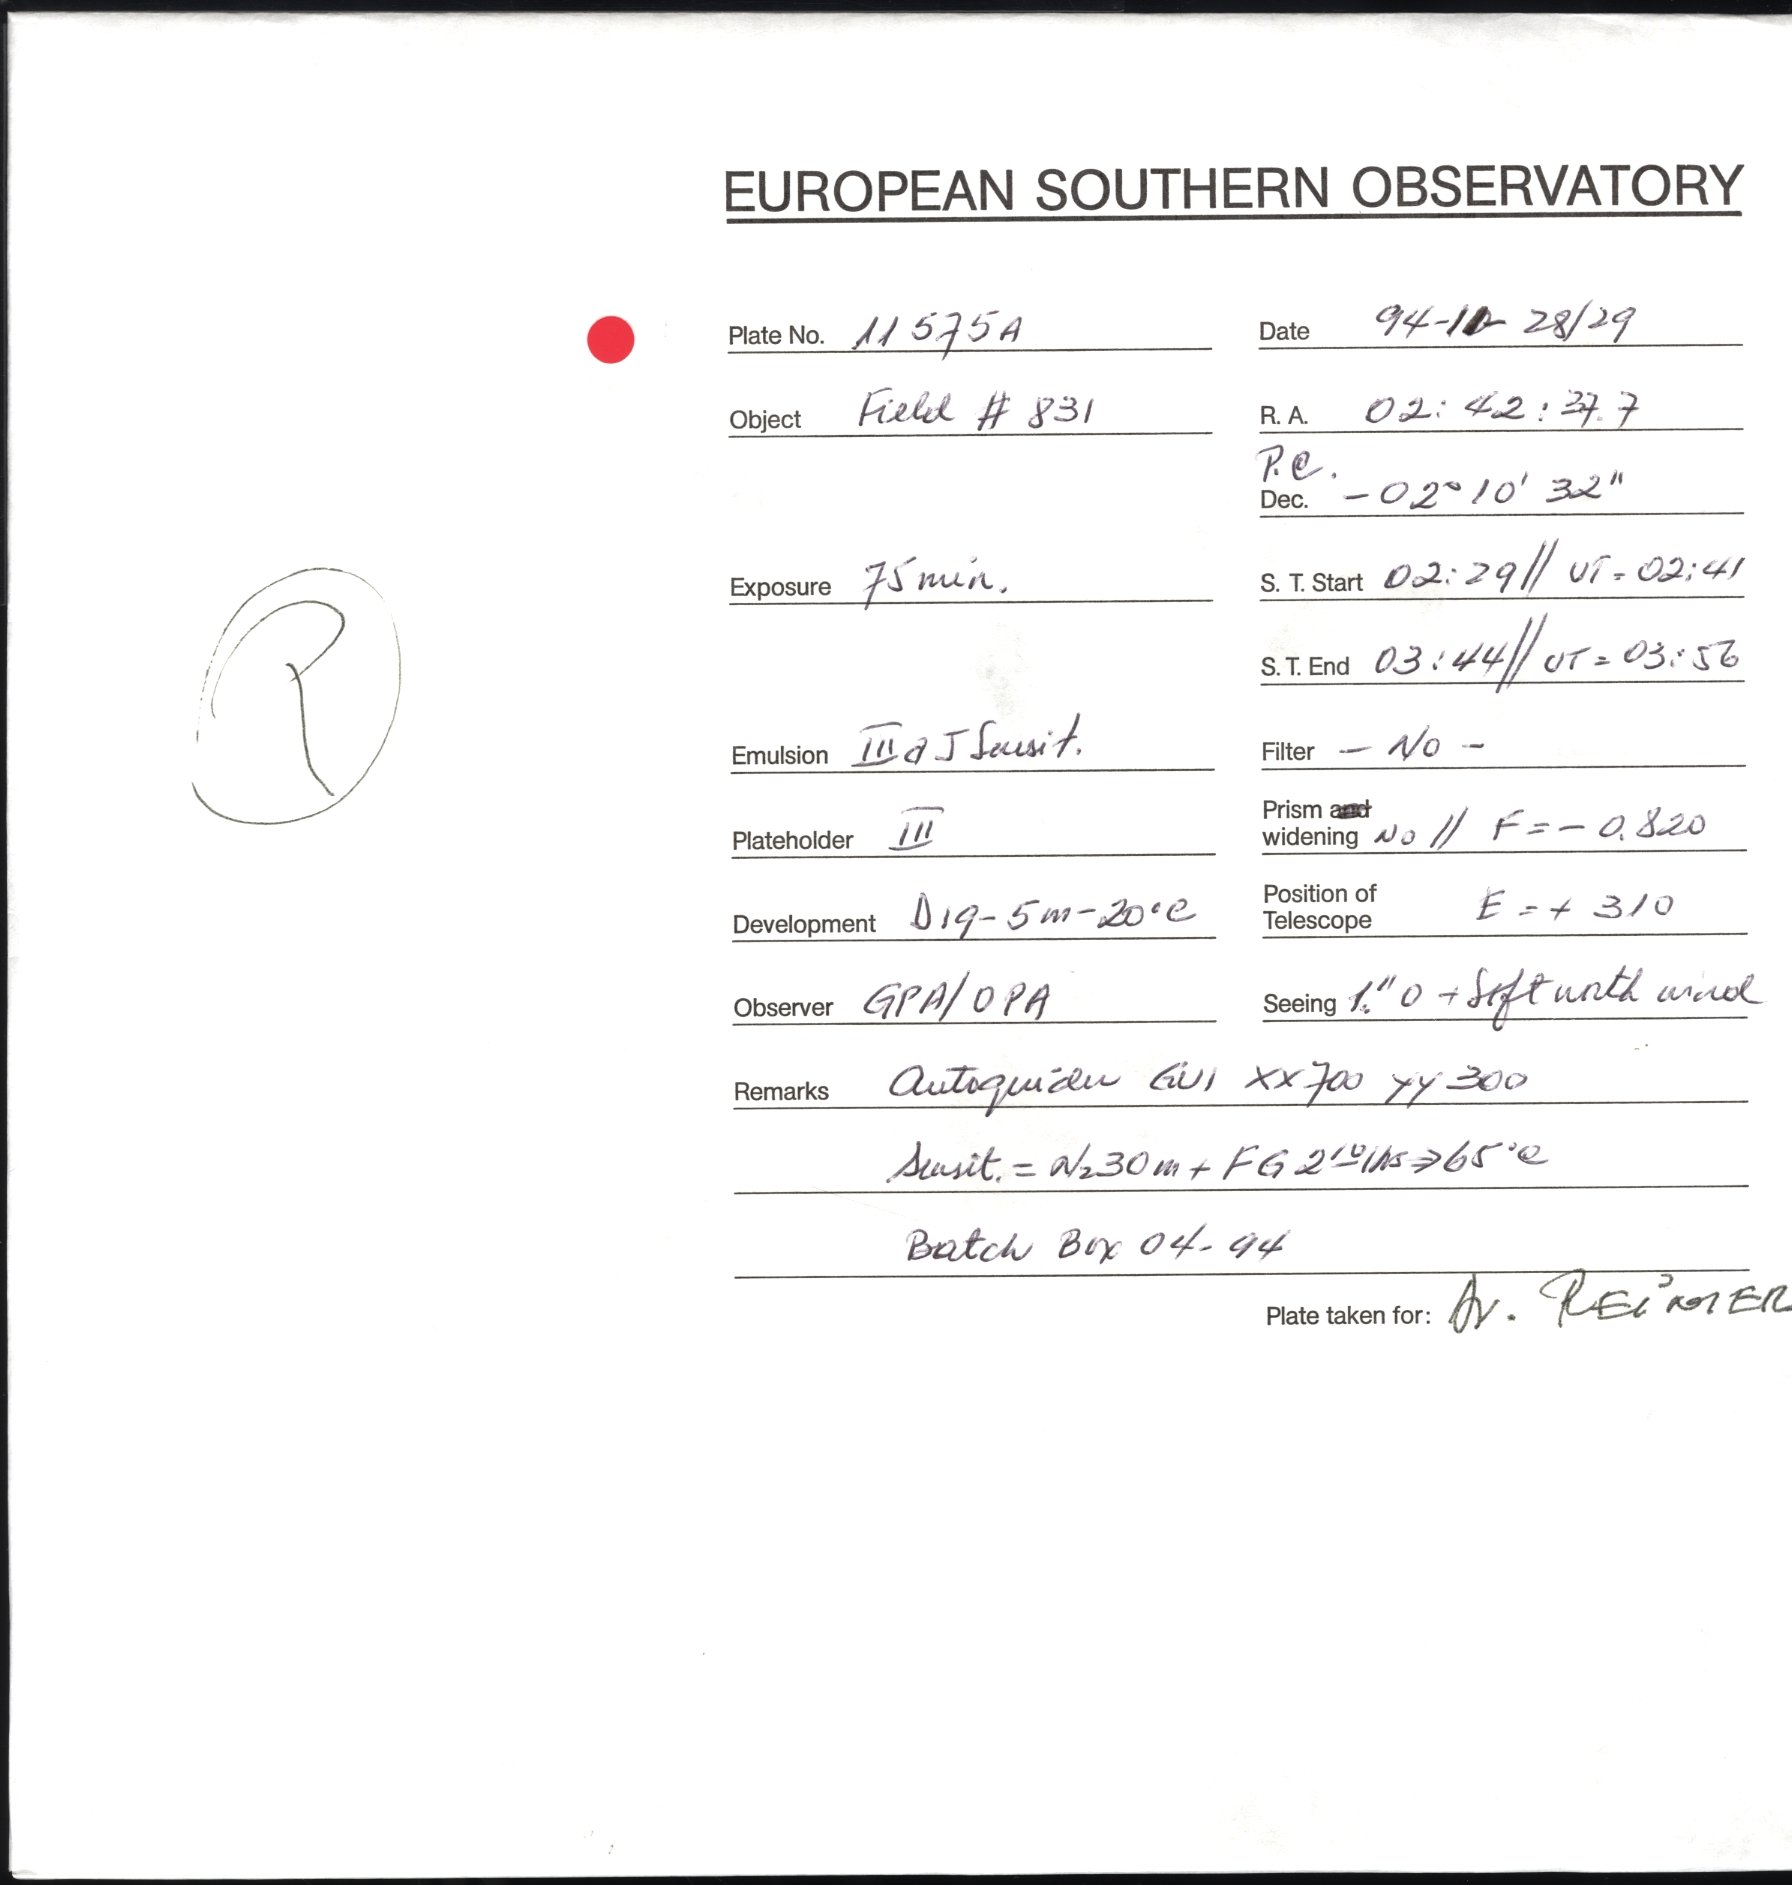 EUROPEAN SOUTHERN OBSERVATORY
Plate No. 11575A
Date 94-10 28/29
Object Field # 831
R. A. 02: 42: 37.7
P.C.
Dec. - 02° 10' 32"
Exposure 75 min.
S. T. Start 02:29// UT = 02:41
S. T. End 03:44// UT = 03:56
R
Emulsion IIIaJ Sensit.
Filter - No -
Plateholder III
Prism and
widening No // F = - 0.820
Development D19 - 5m - 20°C
Position of
Telescope E = + 310
Observer GPA/OPA
Seeing 1."0 + Soft north wind
Remarks Autoguider GU1 XX700 YY300
Sensit. = N2 30m + FG 2 65°C
Batch Box 04-94
Plate taken for: Dr. REIMER